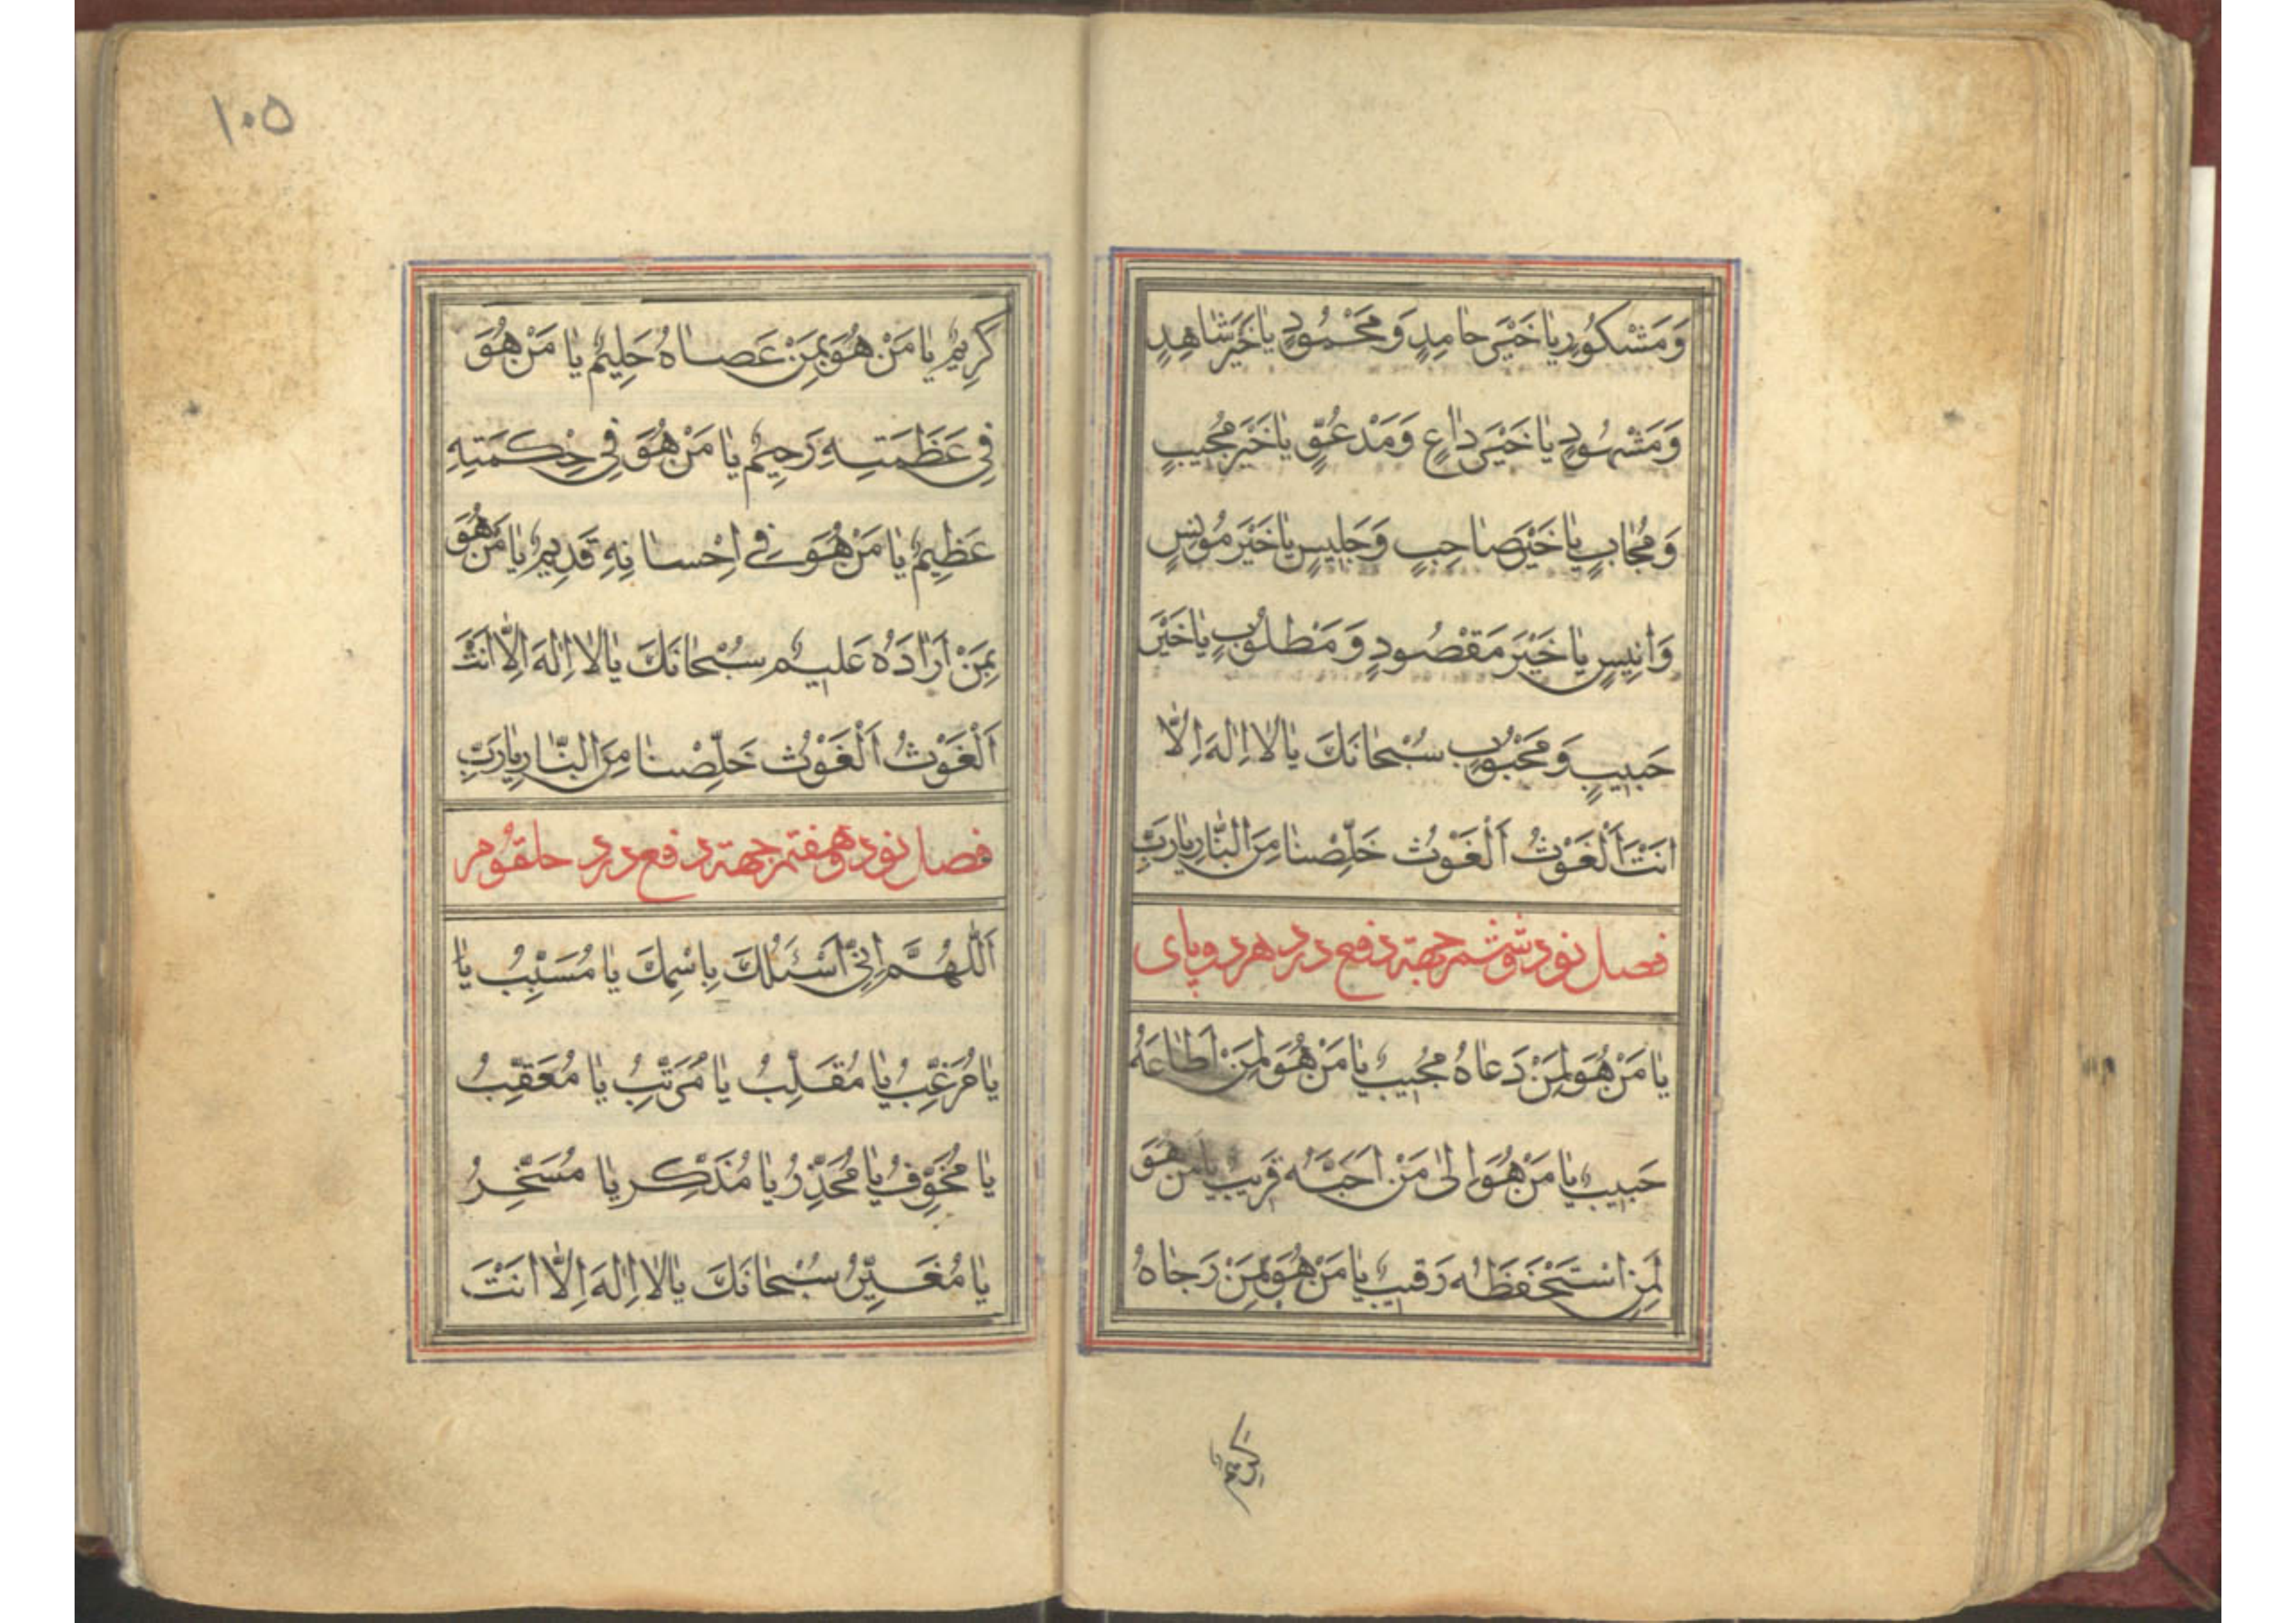 وَمَشْكُورٍ يٰا خَيْرَ حٰامِدٍ وَمَحْمُودٍ يٰا خَيْرَ شٰاهِدٍ
وَمَشْهُودٍ يٰا خَيْرَ دٰاعٍ وَمَدْعُوٍّ يٰا خَيْرَ مُجٖيبٍ
وَمُجٰابٍ يٰا خَيْرَ صٰاحِبٍ وَجَلٖيسٍ يٰا خَيْرَ مُونِسٍ
وَاَنٖيسٍ يٰا خَيْرَ مَقْصُودٍ وَمَطْلُوبٍ يٰا خَيْرَ
حَبٖيبٍ وَمَحْبُوبٍ سُبْحٰانَكَ يٰا لٰا اِلٰهَ اِلّٰا
اَنْتَ اَلْغَوْثُ اَلْغَوْثُ خَلِّصْنٰا مِنَ النّٰارِ يٰا رَبِّ
فصل نود و ششم جهة دفع درد هر دو پای
يٰا مَنْ هُوَ لِمَنْ دَعٰاهُ مُجٖيبٌ يٰا مَنْ هُوَ لِمَنْ اَطٰاعَهُ
حَبٖيبٌ يٰا مَنْ هُوَ اِلىٰ مَنْ اَحَبَّهُ قَرٖيبٌ يٰا مَنْ هُوَ
لِمَنِ اسْتَحْفَظَهُ رَقٖيبٌ يٰا مَنْ هُوَ بِمَنْ رَجٰاهُ
كريم يا
١٠٥
كَرٖيمٌ يٰا مَنْ هُوَ بِمَنْ عَصٰاهُ حَلٖيمٌ يٰا مَنْ هُوَ
فٖى عَظَمَتِهِ رَحٖيمٌ يٰا مَنْ هُوَ فٖى حِكْمَتِهِ
عَظٖيمٌ يٰا مَنْ هُوَ فٖى اِحْسٰانِهِ قَدٖيمٌ يٰا مَنْ هُوَ
بِمَنْ اَرٰادَهُ عَلٖيمٌ سُبْحٰانَكَ يٰا لٰا اِلٰهَ اِلّٰا اَنْتَ
اَلْغَوْثُ اَلْغَوْثُ خَلِّصْنٰا مِنَ النّٰارِ يٰا رَبِّ
فصل نود و هفتم جهة دفع درد حلقوم
اَللّٰهُمَّ اِنّٖى اَسْئَلُكَ بِاسْمِكَ يٰا مُسَبِّبُ يٰا
يٰا مُرَغِّبُ يٰا مُقَلِّبُ يٰا مُرَتِّبُ يٰا مُعَقِّبُ
يٰا مُخَوِّفُ يٰا مُحَذِّرُ يٰا مُذَكِّر يٰا مُسَخِّرُ
يٰا مُغَيِّرُ سُبْحٰانَكَ يٰا لٰا اِلٰهَ اِلّٰا اَنْتَ